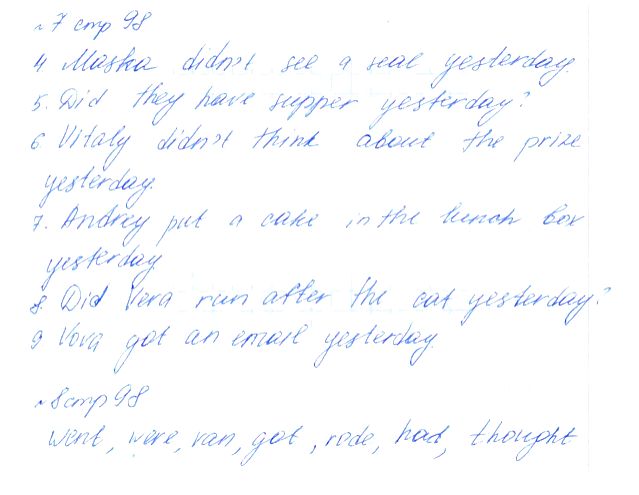 №7 стр 98
4 Masha didn't see a seal yesterday.
5. Did they have supper yesterday?
6 Vitaly didn't think about the prize
yesterday.
7. Andrey put a cake in the lunch box
yesterday
8. Did Vera run after the cat yesterday?
9 Vova got an email yesterday
№8 стр 98
went, were, ran, got, rode, had, thought